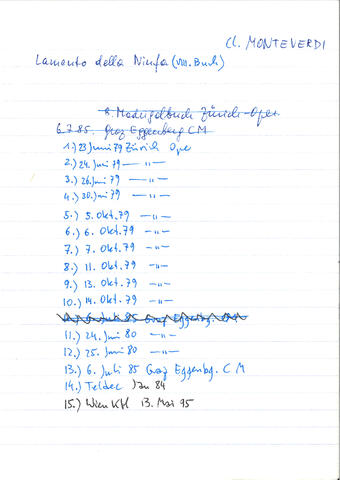 Cl. MONTEVERDI
Lamento della Ninfa (VIII. Buch)
8. Madrigalbuch Zürich-Oper
6.7.85. Graz Eggenberg C M
1.) 23 Juni 79 Zürich Oper
2.) 24. Juni 79 —"—
3.) 26. Juni 79 —"—
4.) 30. Juni 79 —"—
5.) 5. Okt. 79 —"—
6.) 6. Okt. 79 —"—
7.) 7. Okt. 79 —"—
8.) 11. Okt. 79 —"—
9.) 13. Okt. 79 —"—
10.) 14. Okt. 79 —"—
6. Juli 85 Graz Eggenbg. CM
11.) 24. Juni 80 —"—
12.) 25. Juni 80 —"—
13.) 6. Juli 85 Graz Eggenbg. C M
14.) Teldec Jan 84
15.) Wien KH 13. Mai 95